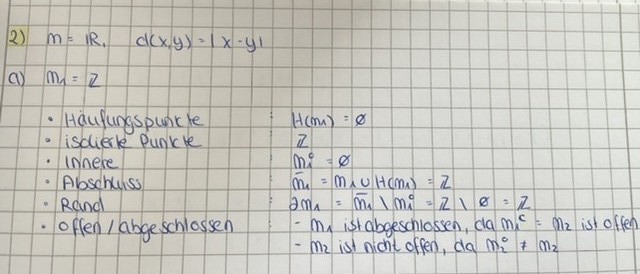 2) M = ℝ, d(x,y) = |x-y|
a) M₁ = ℤ
• Häufungspunkte : H(M₁) = ∅
• isolierte Punkte : ℤ
• Innere : M₁° = ∅
• Abschluss : M̄₁ = M₁ ∪ H(M₁) = ℤ
• Rand : ∂M₁ = M̄₁ \ M₁° = ℤ \ ∅ = ℤ
• Offen / abgeschlossen : - M₁ ist abgeschlossen, da M₁ᶜ = M₂ ist offen
- M₂ ist nicht offen, da M₂° ≠ M₂